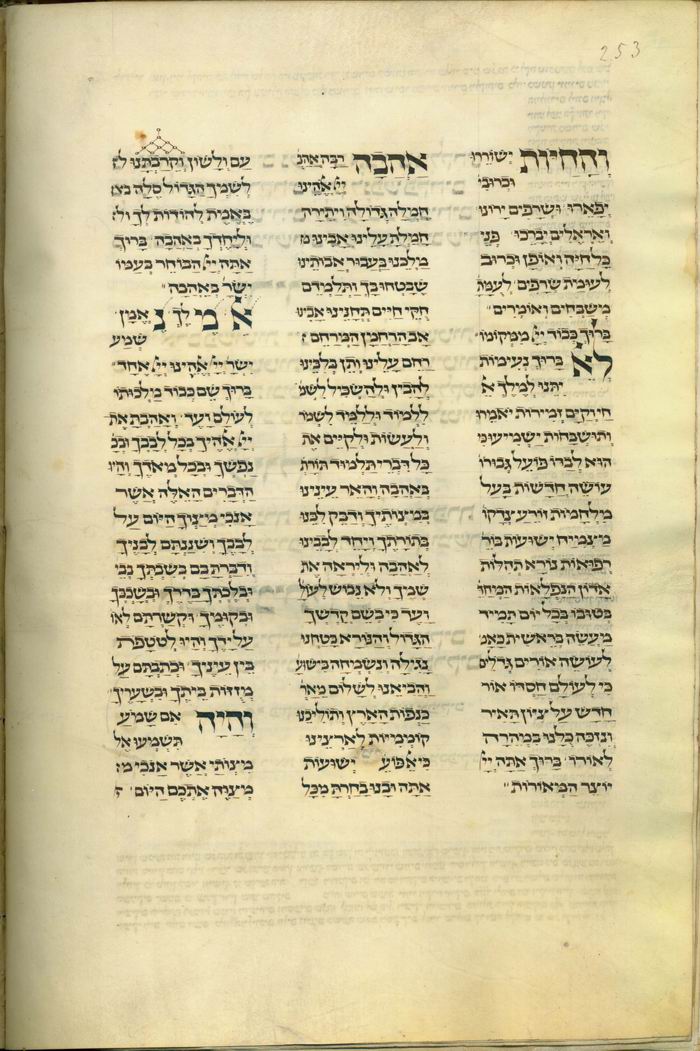 253
והחיות ישוררו
וכרובי
יפארו ושרפים ירונו
ואראלים יברכו פני
כל חיה ואופן וכרוב
לעומת שרפים לעמתם
משבחים ואומרים
ברוך כבוד ייי ממקומו
לאל ברוך נעימות
יתנו למלך א
חי וקים זמירות יאמרו
ותושבחות ישמיעו כי
הוא לבדו פועל גבורו
עושה חדשות בעל
מלחמות זורע צדקו
מצמיח ישועות בור
רפואות נורא תהלות
אדון הנפלאות המחד
בטובו בכל יום תמיד
מעשה בראשית כאמ
לעושה אורים גדולים
כי לעולם חסדו אור
חדש על ציון תאיר
ונזכה כלנו במהרה
לאורו ברוך אתה ייי
יוצר המאורות
אהבה רבה אהבתנ
ייי אלהינו
חמלה גדולה ויתירה
חמלת עלינו אבינו מ
מלכנו בעבור אבותינו
שבטחו בך ותלמדם
חקי חיים תחנינו אבינו
אב הרחמן המרחם
רחם עלינו ותן בלבינו
להבין ולהשכיל לשמ
ללמוד וללמד לשמר
ולעשות ולקיים את
כל דברי תלמוד תורת
באהבה והאר עינינו
במצותיך ודבק לבנו
בתורתך ויחד לבבינו
לאהבה וליראה את
שמיך ולא נבוש לעול
ועד כי בשם קדשך
הגדול והנורא בטחנו
נגילה ונשמחה בישוע
והביאנו לשלום מאר
כנפות הארץ ותוליכנו
קוממיות לארצינו
כי אל פועל ישועות
אתה ובנו בחרת מכל
עם ולשון וקרבתנו לז
לשמך הגדול סלה בא
באמת להודות לך ול
וליחדך באהבה ברוך
אתה ייי הבוחר בעמיו
ישר באהבה
אל מלך נאמן
שמע
ישר ייי אלהינו ייי אחד
ברוך שם כבוד מלכותו
לעולם ועד ואהבת את
ייי אלהיך בכל לבבך ובכ
נפשך ובכל מאדך והיו
הדברים האלה אשר
אנכי מצוך היום על
לבבך ושננתם לבניך
ודברת בם בשבתך בבי
ובלכתך בדרך ובשכבך
ובקומיך וקשרתם לאו
על ידך והיו לטטפת
בין עיניך וכתבתם על
מזוזות ביתך ובשעריך
והיה אם שמוע
תשמעו אל
מצותי אשר אנכי מ
מצוה אתכם היום